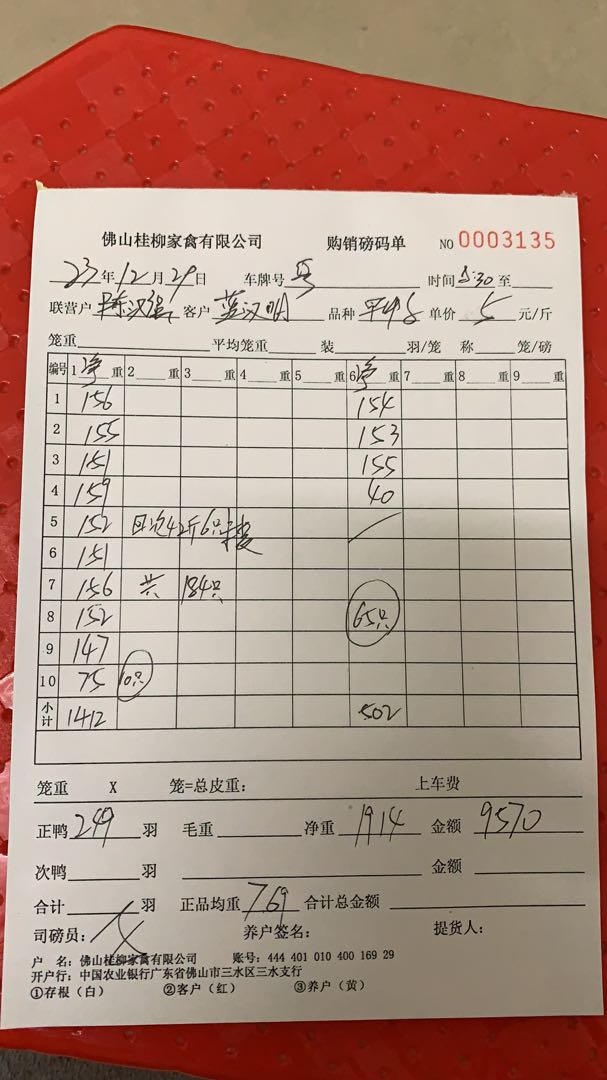 佛山桂柳家禽有限公司 购销磅码单 NO 0003135
23年12月29日 车牌号 时间 5:30 至
联营户 陈汉强 客户 蓝汉明 品种 单价 5 元/斤
笼重 平均笼重 装 羽/笼 称 笼/磅
编号 1 净 重 2 重 3 重 4 重 5 重 6 净 重 7 重 8 重 9 重
1 156 154
2 155 153
3 151 155
4 159 40
5 152 42斤6只
6 151
7 156 共 184只
8 152 65只
9 147
10 75 10只
小计 1412 502
笼重 X 笼=总皮重: 上车费
正鸭 249 羽 毛重 净重 1914 金额 9570
次鸭 羽 金额
合计 羽 正品均重 7.69 合计总金额
司磅员: 养户签名: 提货人:
户 名: 佛山桂柳家禽有限公司 账号: 444 401 010 400 169 29
开户行: 中国农业银行广东省佛山市三水区三水支行
①存根(白) ②客户(红) ③养户(黄)